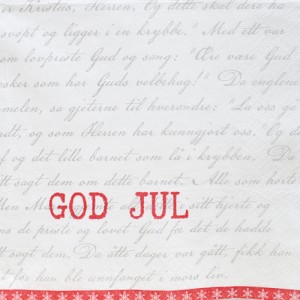 er Kristus, Herren. Og dette skal dere ha
svøpt og ligger i en krybbe." Med ett var
om lovpriste Gud og sang: "Ære være Gud
esker som har Guds velbehag!" Da englene
melen, sa gjeterne til hverandre: "La oss gå
rdt, og som Herren har kunngjort oss. Og
f og det lille barnet som lå i krybben. D
itt sagt dem om dette barnet. Alle som hørte
GOD JUL
llen M
i sitt hjerte og
os de priste og lovet Gud for det de hadde
itt sagt dem. Da åtte dager var gått, fikk han
t for han ble unnfanget i mors liv.